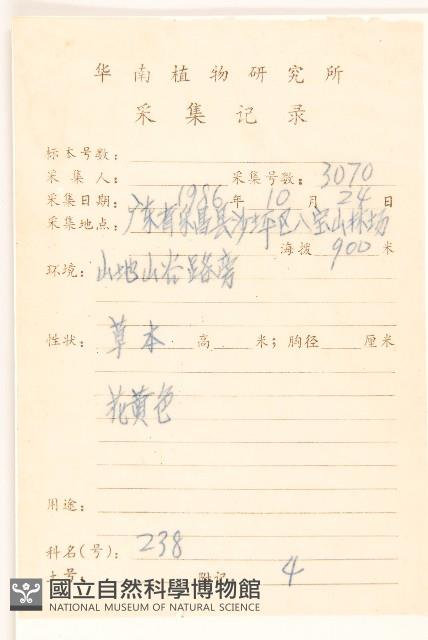 华南植物研究所
采集记录
标本号数：
采集人： 采集号数：3070
采集日期：1986年10月24日
采集地点：广东省乐昌县沙坪区八宝山林场
海拨 900 米
环境：山地山谷路旁
性状：草本 高 米；胸径 厘米
花黄色
用途：
科名(号)：238
土名： 附记 4
國立自然科學博物館
NATIONAL MUSEUM OF NATURAL SCIENCE